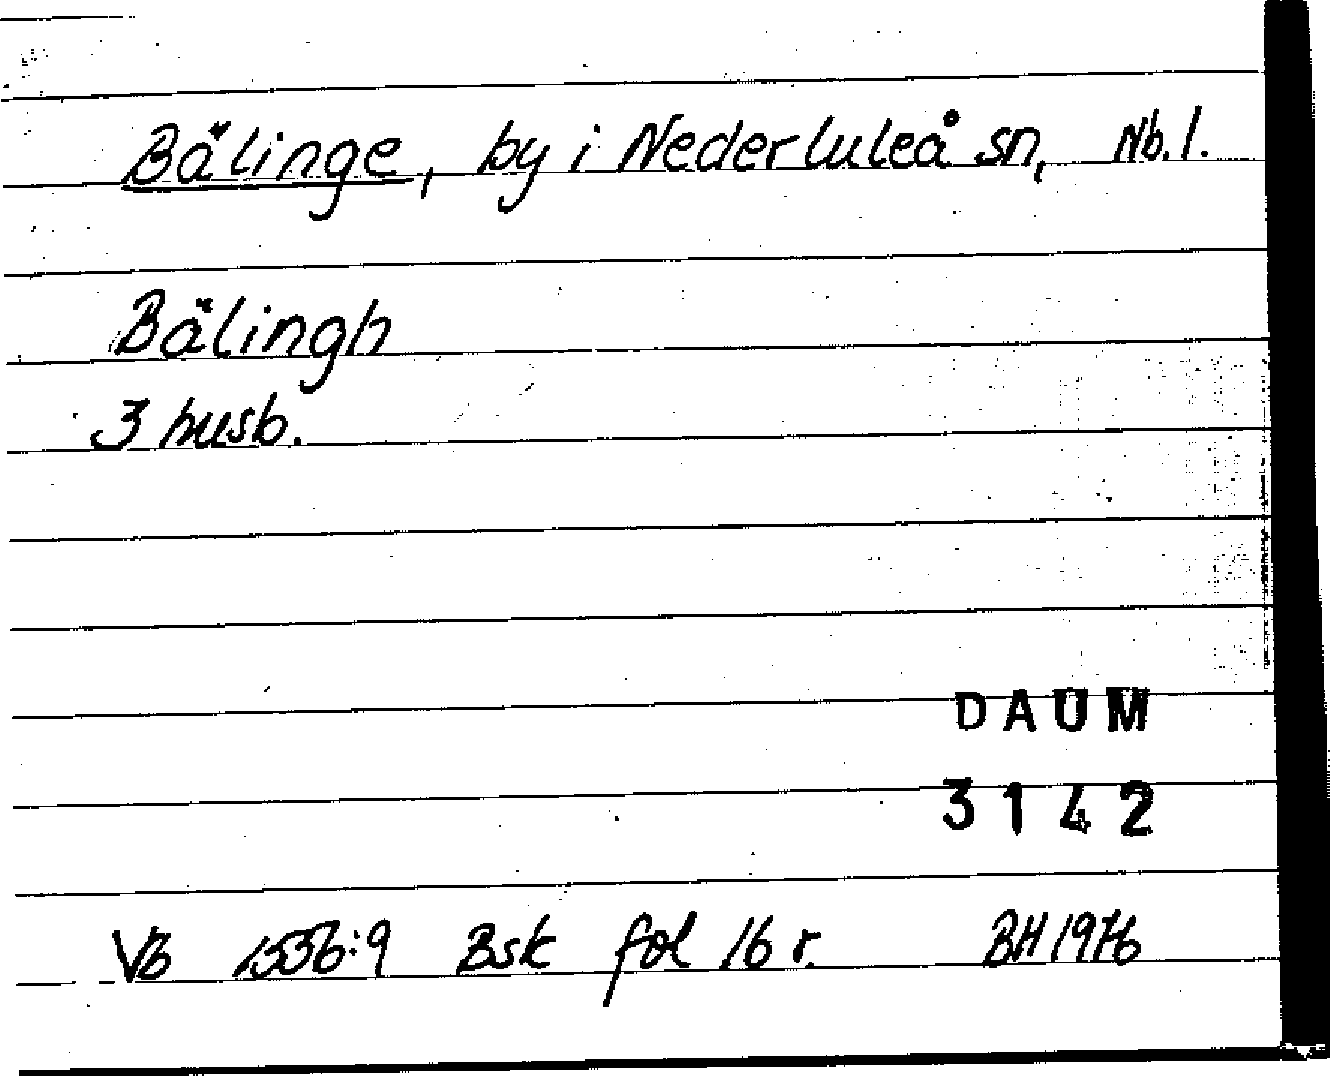 Bälinge, by i Nederluleå sn, Nb.l.
Bälingh
3 husb.
DAUM
3142
VB 1556:9 Bsk fol 16 r. BH 1976